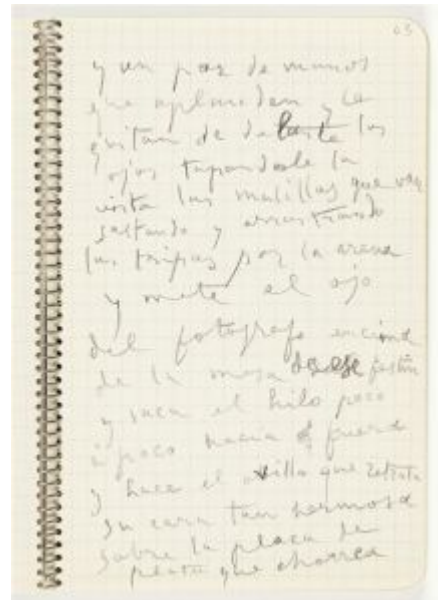 63
y un par de manos
que aplauden y le
quitan de delante los
ojos tapandole la
vista las mulillas que van
saltando y arrastrando
las tripas por la arena
y mete el ojo
del fotografo encima
de la mesa de ese festin
y saca el hilo poco
a poco hacia fuera
y hace el ovillo que retrata
su cara tan hermosa
sobre la placa de
plata que chorrea